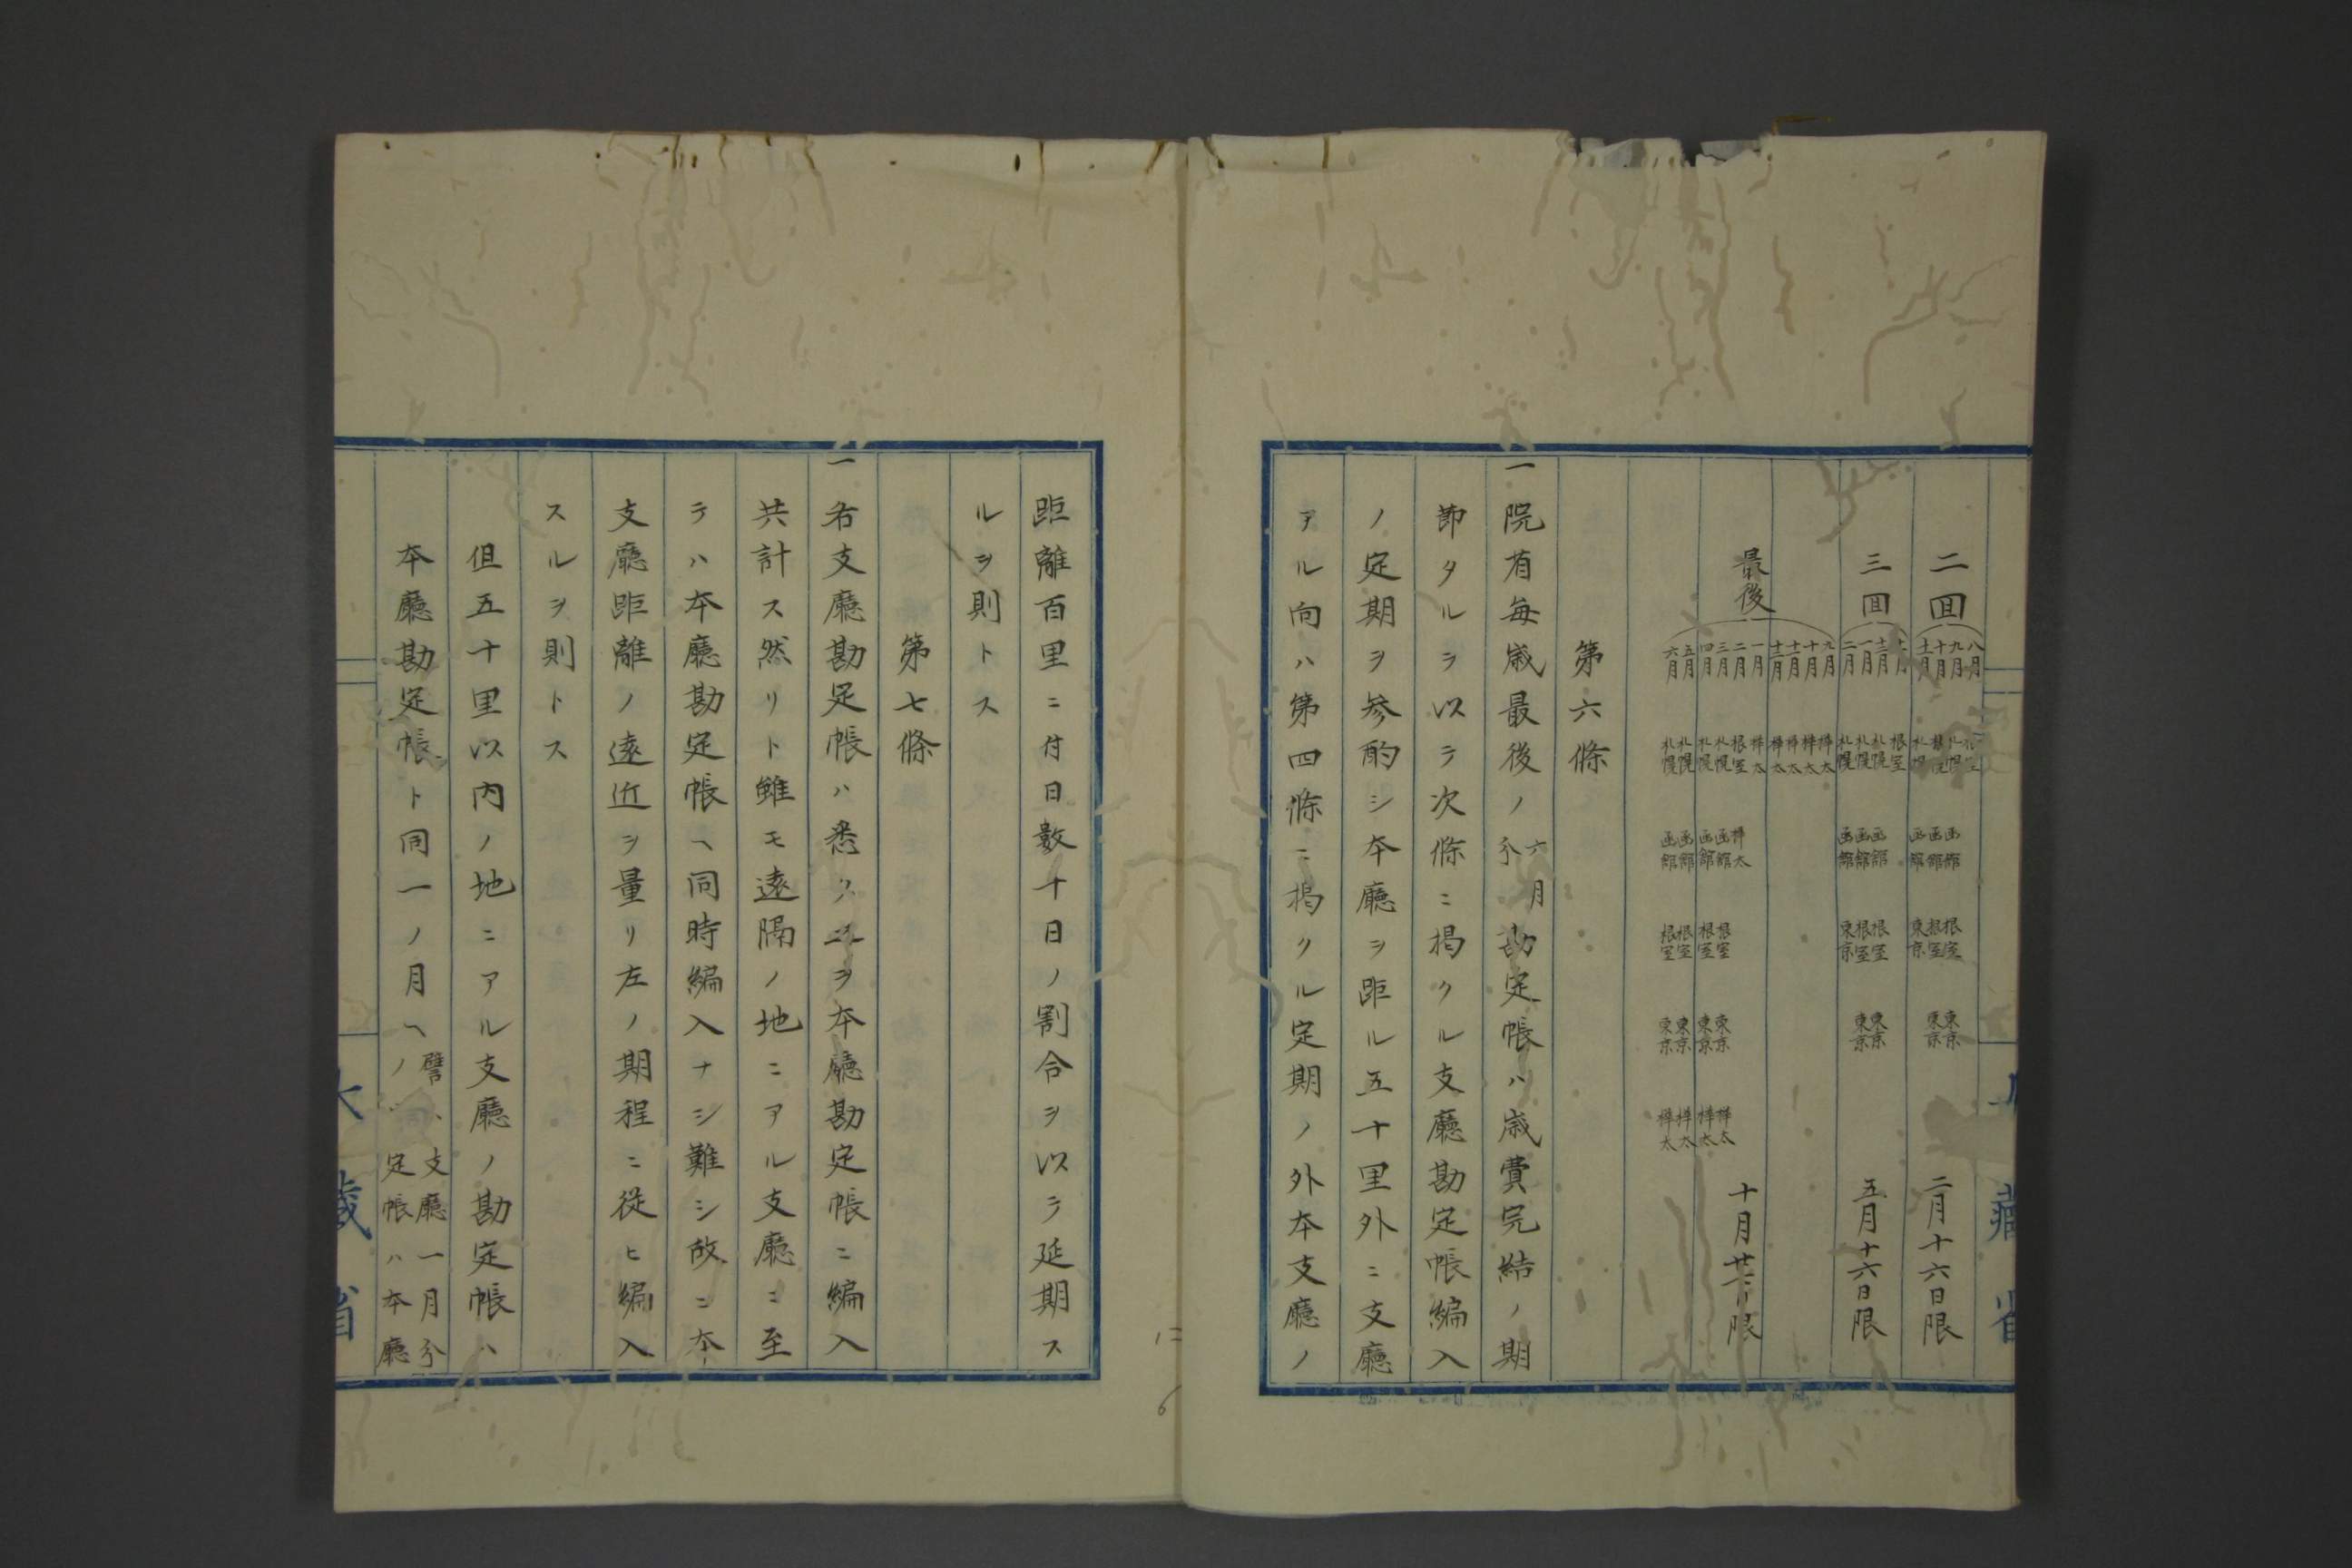 二回
八月 根室
九月 札幌 函館 根室 東京
十月 樺太 函館 根室 東京
十一月 札幌 函館 東京
二月十六日限
三回
十一月 根室
十二月 札幌 函館 根室 東京
一月 札幌 函館 根室 東京
二月 札幌 函館 東京
五月十六日限
最後
九月 樺太
十月 樺太
十一月 樺太
十二月 樺太
一月 樺太
二月 根室 樺太
三月 札幌 函館 根室 東京 樺太
四月 札幌 函館 根室 東京 樺太
五月 札幌 函館 根室 東京 樺太
六月 札幌 函館 根室 東京 樺太
十月廿二日限
第六條
一院省毎歳最後ノ六月分勘定帳ハ歳費完結ノ期
節タルヲ以テ次條ニ掲クル支廳勘定帳編入
ノ定期ヲ参酌シ本廳ヲ距ル五十里外ニ支廳
アル向ハ第四條ニ掲クル定期ノ外本支廳ノ
距離百里ニ付日数十日ノ割合ヲ以テ延期ス
ルヲ則トス
第七條
一各支廳勘定帳ハ悉ク之ヲ本廳勘定帳ニ編入
共計ス然リト雖モ遠隔ノ地ニアル支廳ニ至
テハ本廳勘定帳ヘ同時編入ナシ難シ故ニ本
支廳距離ノ遠近ヲ量リ左ノ期程ニ従ヒ編入
スルヲ則トス
但五十里以内ノ地ニアル支廳ノ勘定帳ハ
本廳勘定帳ト同一ノ月ヘ
支廳一月分
定帳ハ本廳
大藏省
藏省